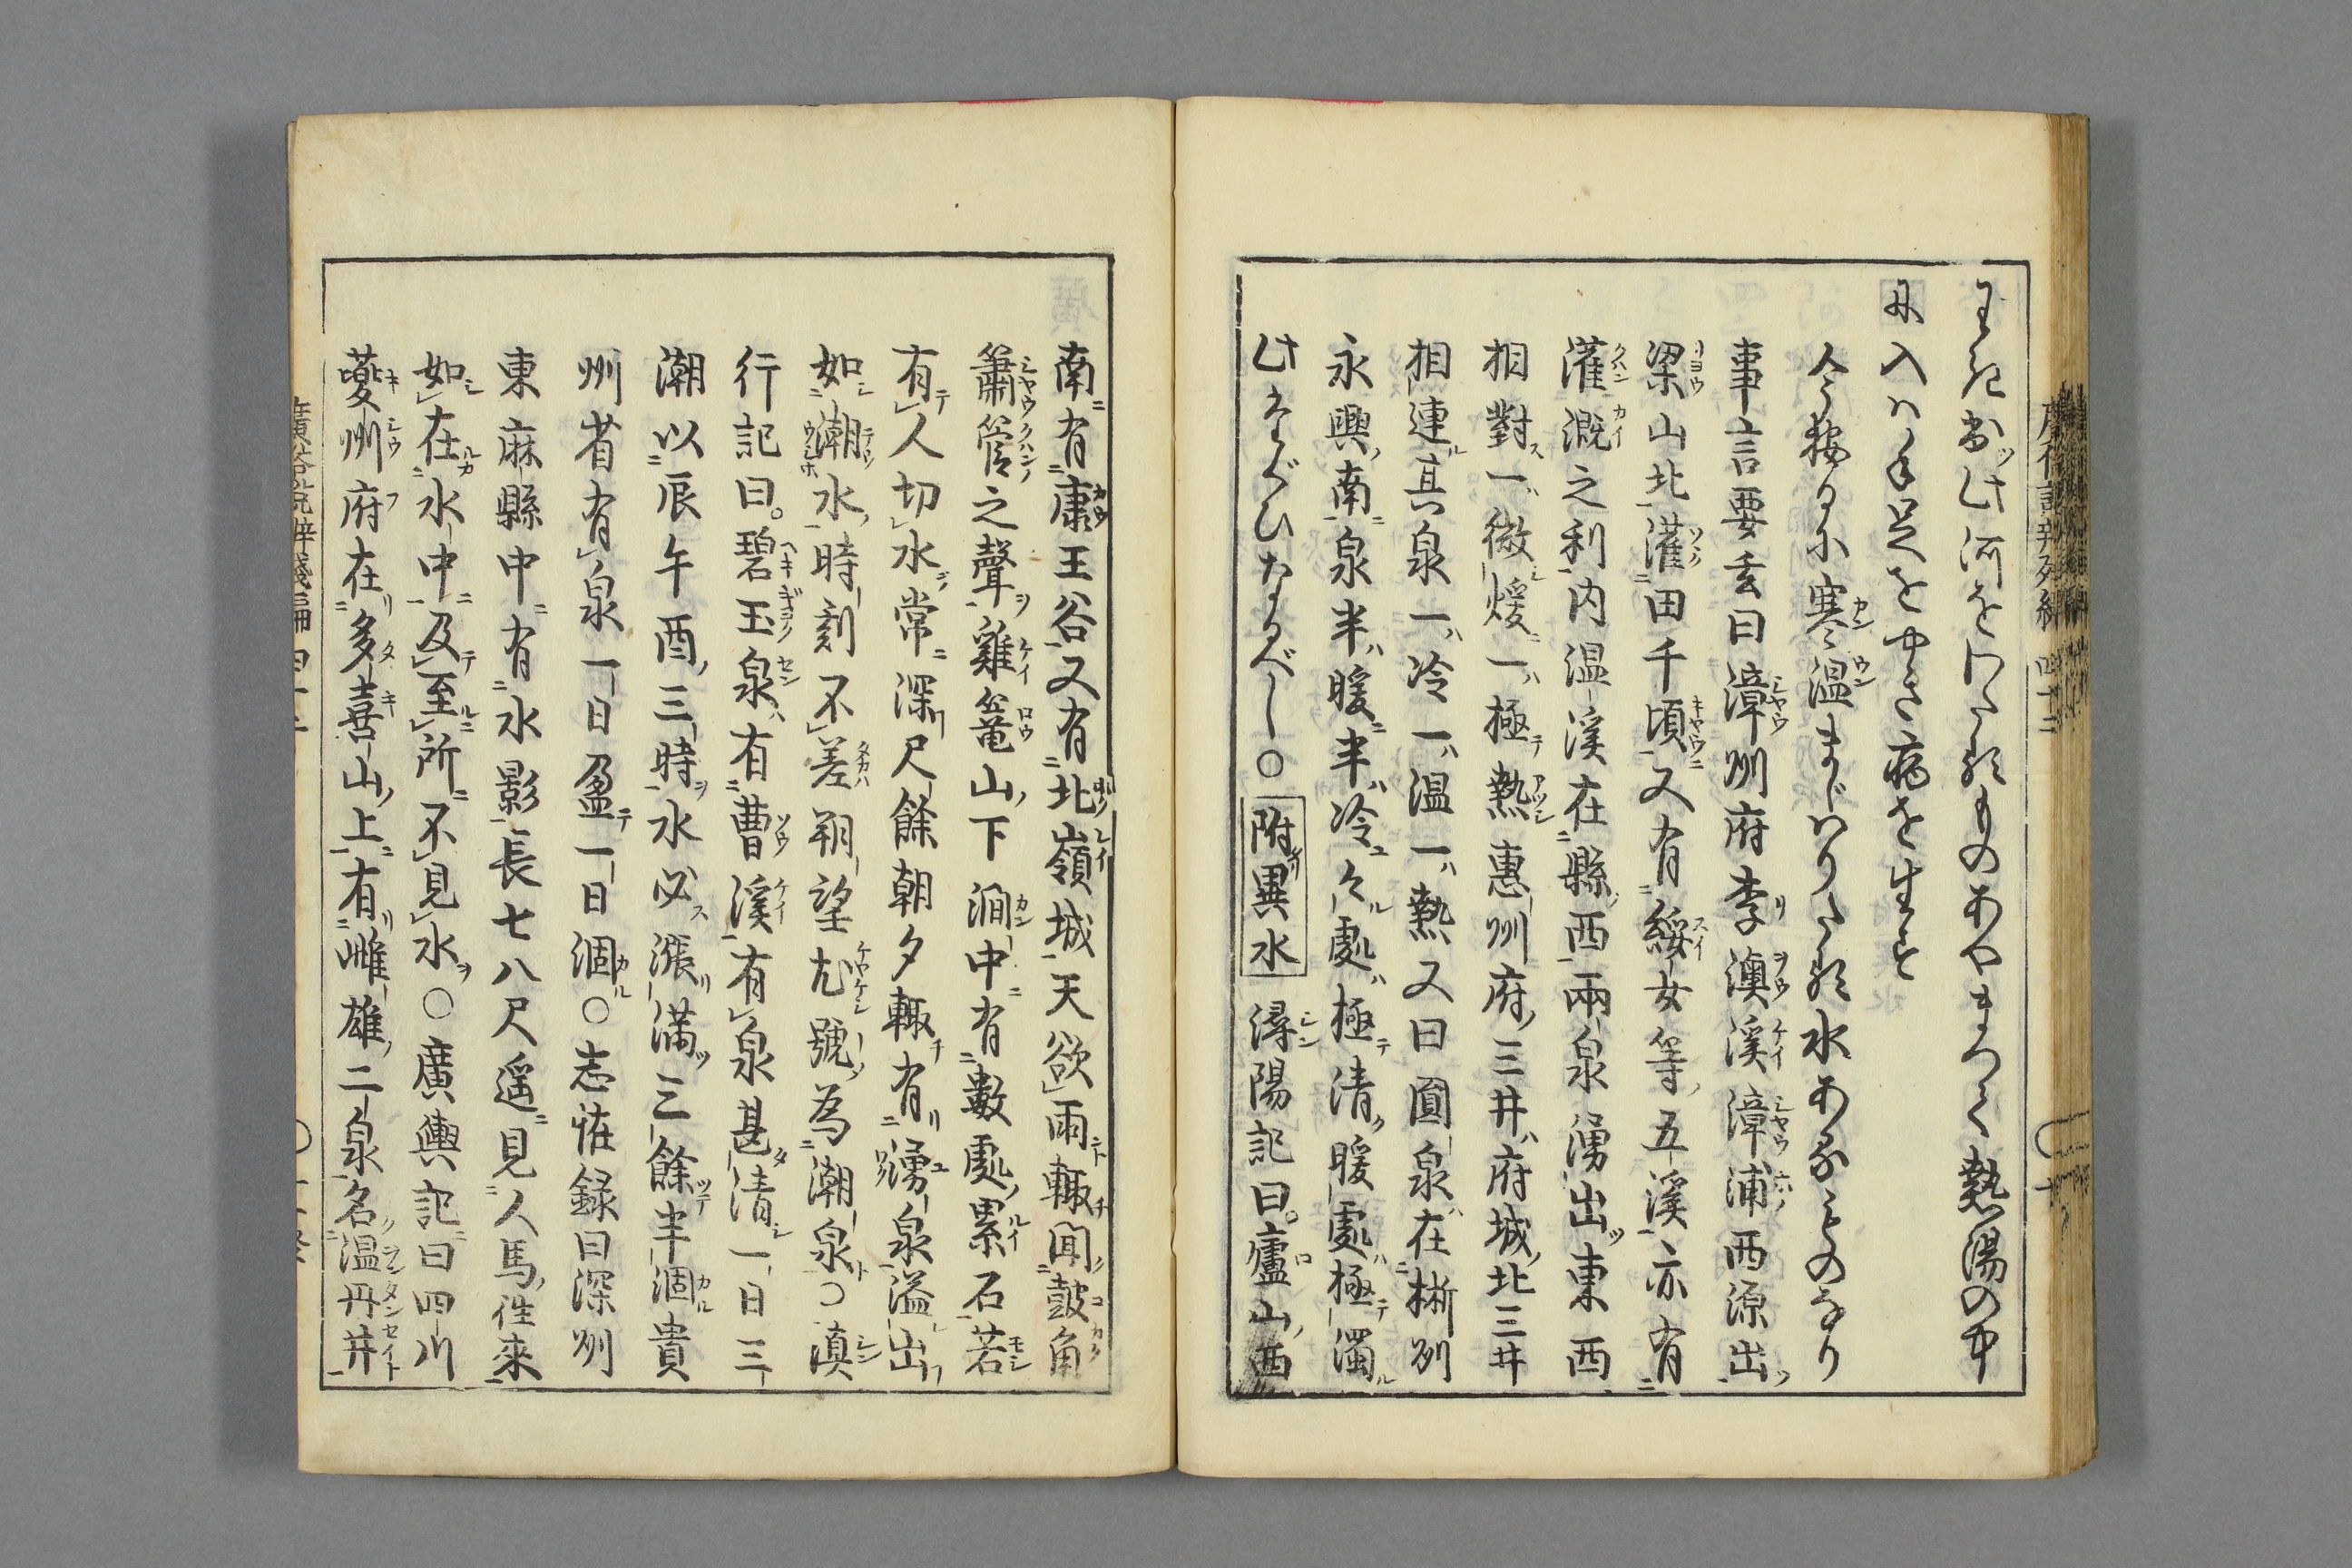 わき出此河をわたるものあやまつて熱湯の中
に入ハ手足をやき病を生ず
今按るに寒温まじハりたる水あるものなり
事言要玄曰漳州府李澳溪漳浦西源出
梁山北灌田千頃又有綏女等五溪亦有
灌漑之利内温溪在縣西兩泉湧出東西
相對一微煖一極熱惠州府三井府城北三井
相連其泉一冷一温一熱又曰圓泉在郴州
永興南泉半暖半冷々處極清暖處極濁
此たぐひなるべし○附異水 潯陽記曰廬山西
南有康王谷又有北嶺城天欲雨輙聞鼓角
簫管之聲雞篭山下澗中有數處累石若
有人切水常深尺餘朝夕輙有湧泉溢出
如潮水時刻不差朔望尤號為潮泉○滇
行記曰碧玉泉有曹溪有泉甚清一日三
潮以辰午酉三時水必漲满三餘半涸貴
州省有泉一日盈一日涸○志怪録曰深州
東麻縣中有水影長七八尺遥見人馬徃來
如在水中及至所不見水○廣輿記曰四川
夔州府在多喜山上有雌雄二泉名温丹井